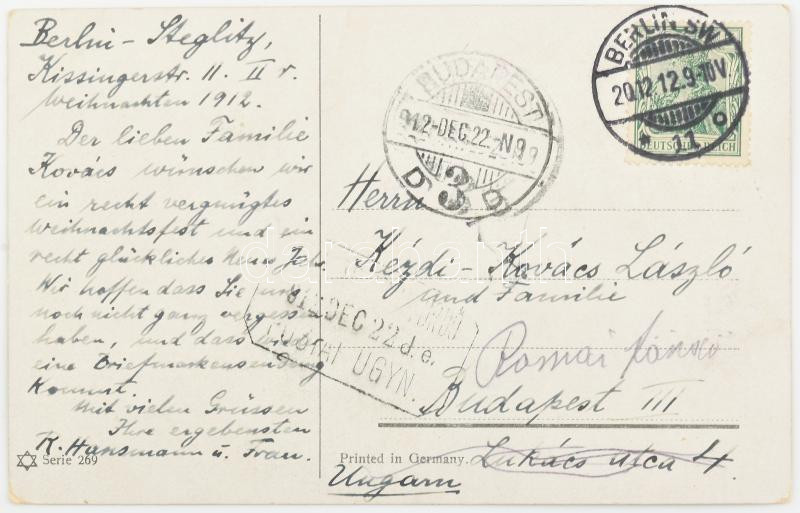 Berlin - Steglitz,
Kissingerstr. 11. II r.
Weihnachten 1912.
Der lieben Familie
Kovács wünschen wir
ein recht vergnügtes
Weihnachtsfest und ein
recht glückliches Neues Jahr.
Wir hoffen dass Sie uns
noch nicht ganz vergessen
haben, und dass wieder
eine Briefmarkensendung
kommt.
Mit vielen Grüssen
Ihre ergebensten
R. Hansmann u. Frau.
Serie 269
BERLIN SW
20.12.12.9-10V.
* 11 o
DEUTSCHES REICH
BUDAPEST
912-DEC.22.-N9
3
D
912 DEC 22 d. e.
POSTAI ÜGYN.
Herrn
Kézdi-Kovács László
und Familie
Római
Budapest III
Lukács utca 4.
Printed in Germany.
Ungarn